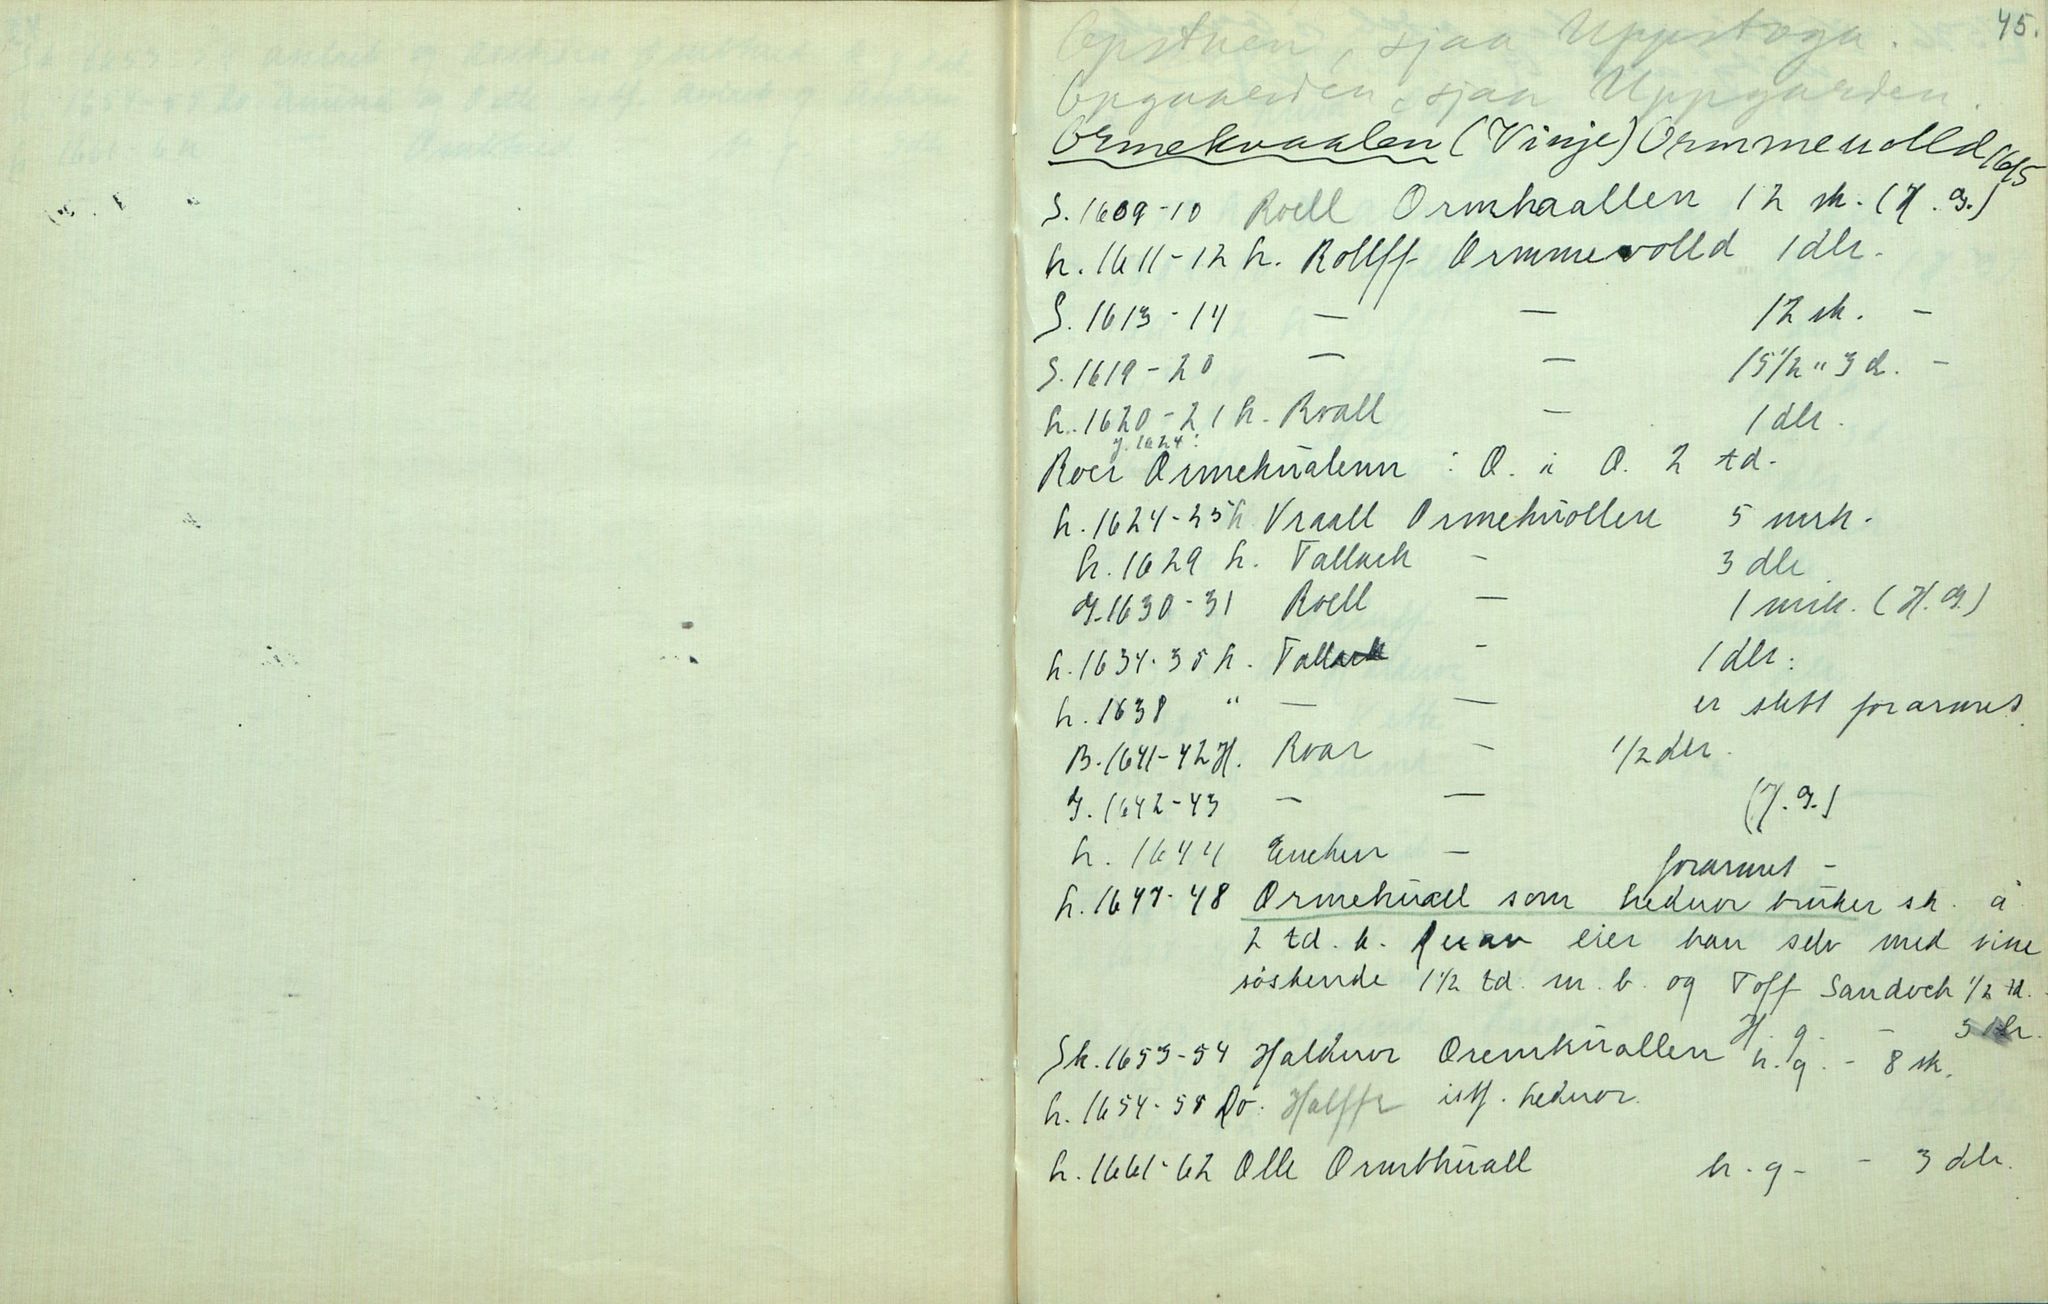 45.
Opstuen, sjaa Uppistoga.
Opgaarden, sjaa Uppgarden.
Ormekvaalen (Vinje) Ormmevolld 1615
S. 1609-10 Roell Ormhaallen 12 sk. (H. G.)
L. 1611-12 h. Rollff Ormmevolld 1 dlr.
S. 1613-14 — — 12 sk. —
S. 1619-20 — — 15 1/2 " 3 d. —
L. 1620-21 h. Roall — 1 dlr.
J. 1624:
Roer Ormekualenn : O. i O. 2 td.
L. 1624-25 h Vraall Ormekuollen 5 mrk.
L. 1629 h. Tallack - 3 dlr
G. 1630-31 Roell — 1 mrk. (H. G.)
L. 1634-35 h. Tallack - 1 dlr.
L. 1638 " — — er slett forarmet.
B. 1641-42 H. Roar - 1/2 dlr.
G. 1642-43 — — (H. G.)
L. 1644 Enchen — forarmet -
L. 1647-48 Ormekuall som hednor bruker sk. a
2 td. k. eier han selv med sine
søskende 1 1/2 td. m. b. og Toff Sandock 1/2 td.
H. g. -
Sk. 1653-54 Haldnor Oremkuallen h. g. - 8 sk.
L. 1654-55 Do. Halffr istf. hednor.
L. 1661-62 Olle Ormbkuall h. g. - - 3 dlr.